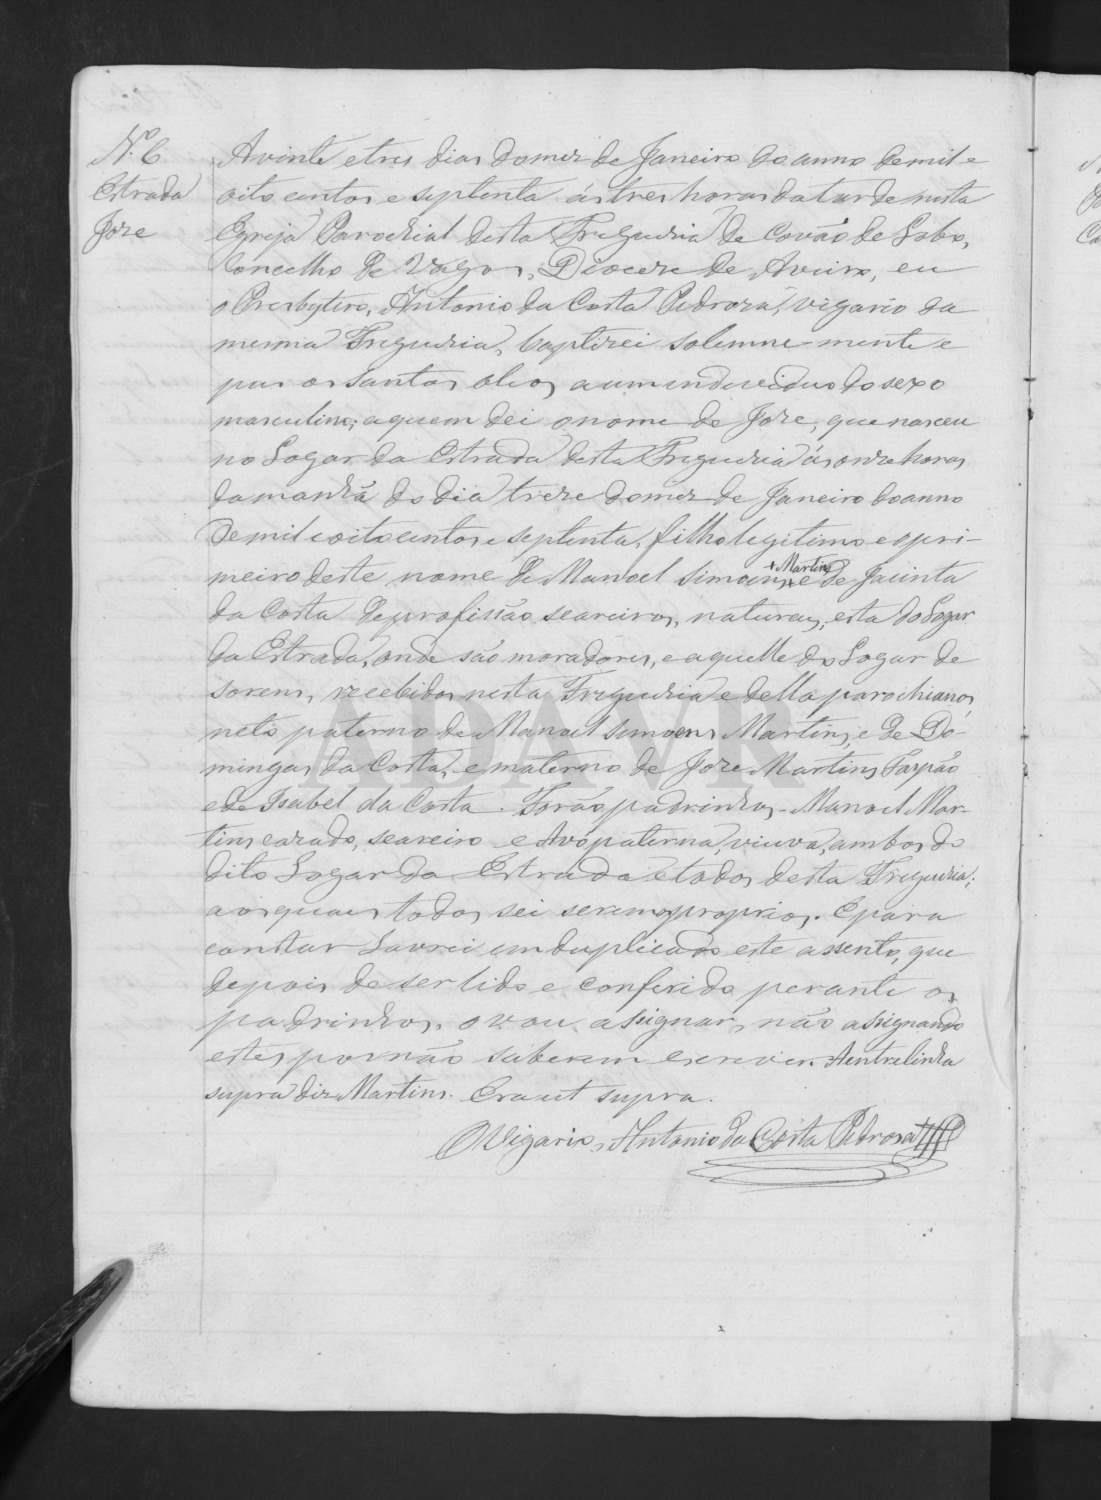 N.º 6
Estrada
Joze
A vinte e tres dias do mez de Janeiro do anno de mil e
oito centos e septenta ás tres horas da tarde nesta
Egreja Parochial desta Freguezia de Covão de Lobo,
Concelho de Vagos, Diocese de Aveiro, eu
o Presbytero, Antonio da Costa Pedroza, vigario da
mesma Freguezia, baptizei solemne-mente e
pus os Santos oleos a um individuo do sexo
masculino; a quem dei o nome de Joze, que nasceu
no Logar da Estrada desta Freguezia ás onze horas
da manhã do dia treze do mez de Janeiro do anno
de mil e oito centos e septenta, filho legitimo e o pri-
meiro deste nome de Manoel Simoens + Martins + e de Jacinta
da Costa de profissão seareiros, naturaes, esta do Logar
da Estrada, onde são moradores, e aquelle do Logar de
Sorens, recebidos nesta Freguezia e della parochianos,
neto paterno de Manoel Simoens Martins, e de Do-
mingas da Costa, e materno de Joze Martins Sarpão
e de Isabel da Costa. Forão padrinhos - Manoel Mar-
tins cazado, seareiro e Avó paterna, viuva, ambos do
dito Logar da Estrada e todos desta Freguezia;
aos quaes todos sei serem os proprios. E para
constar lavrei em duplicado este assento, que
depois de ser lido e conferido perante os
padrinhos, o vou assignar, não assignando
estes por não saberem escrever. A entrelinha
supra diz Martins. Era ut supra.
O Vigario, Antonio da Costa Pedroza
ADAVR